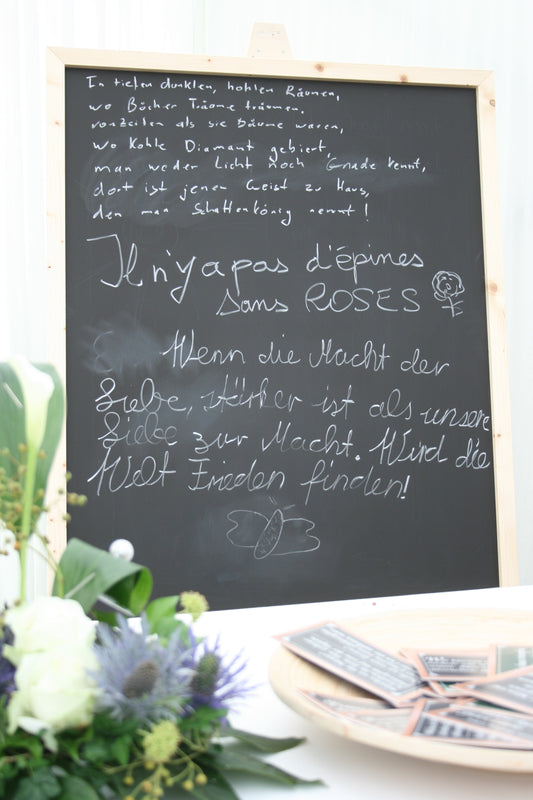 In tiefen dunklen, hohlen Räumen,
wo Bücher Träume träumen.
vorzeiten als sie Bäume waren,
wo Kohle Diamant gebiert,
man weder Licht noch Gnade kennt,
dort ist jener Geist zu Haus,
den man Schattenkönig nennt!
Il n'y a pas d'épines
sans ROSES
Wenn die Macht der
Liebe, stärker ist als unsere
Liebe zur Macht. Wird die
Welt Frieden finden!